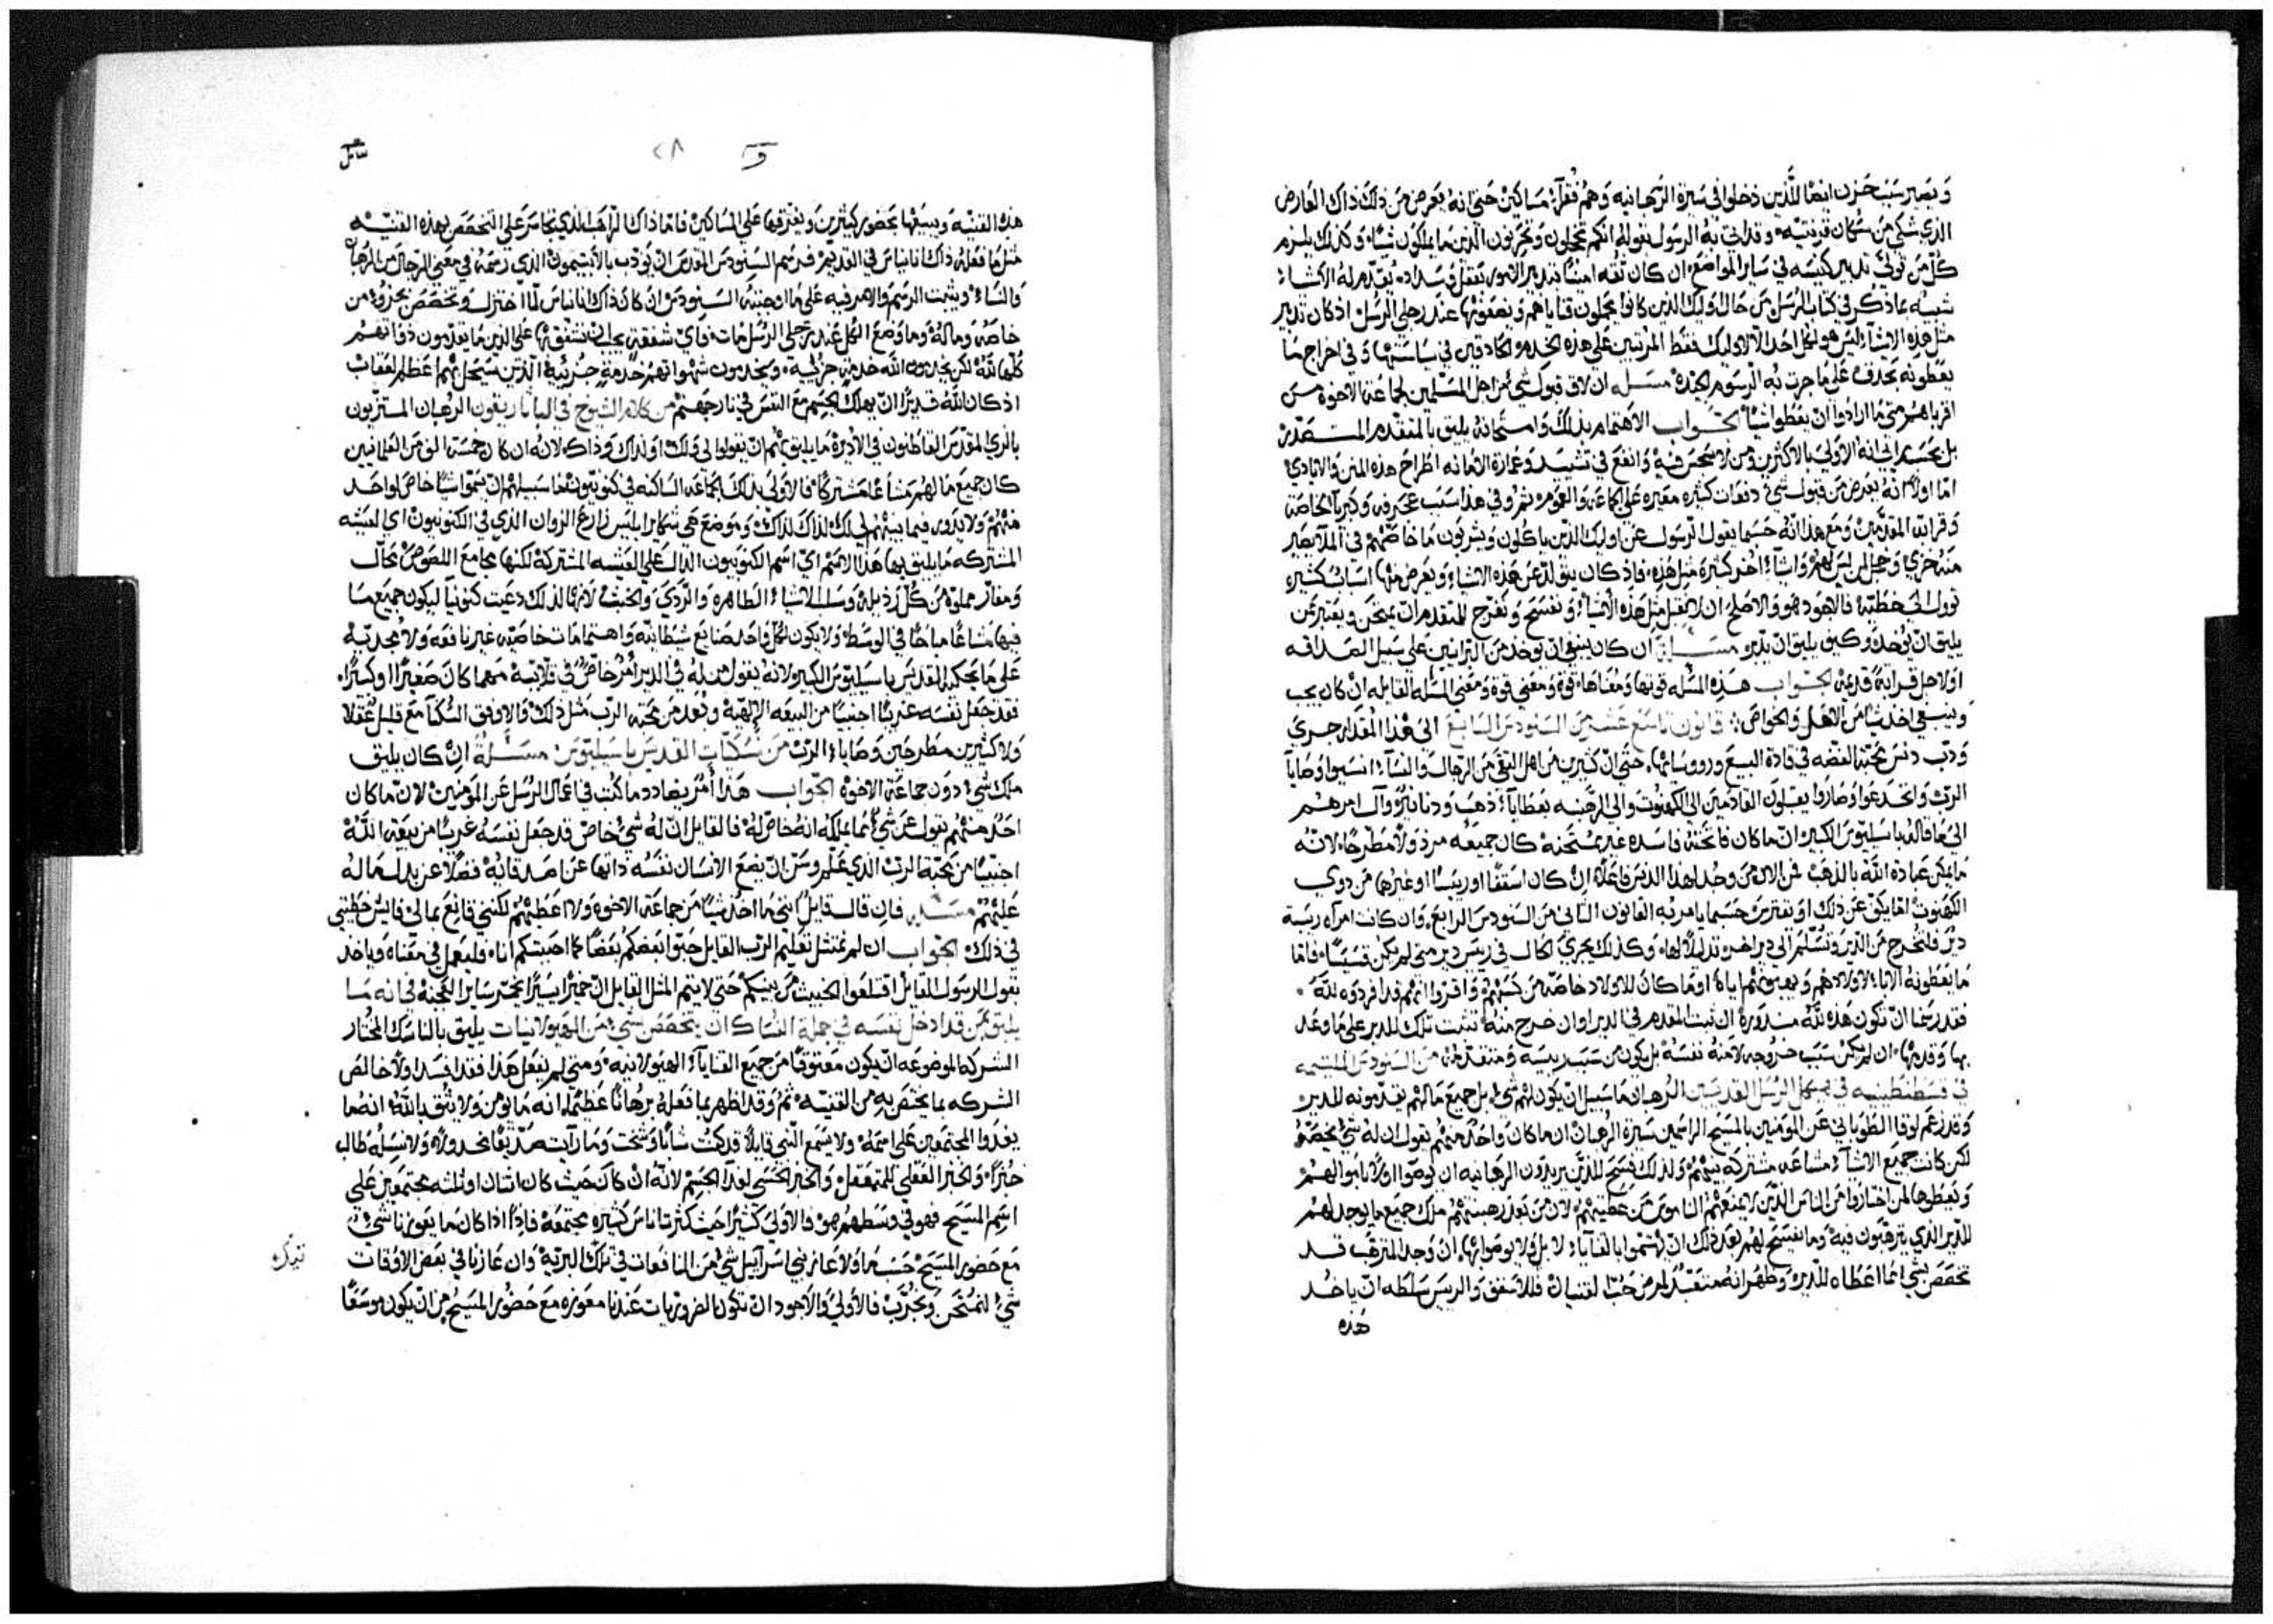 وَيصير سَبَبَ حَزن ايضًا للَّذين دَخلوا في سَيرة الرَّهبانيه وَهم فُقرآء مَسَاكين حَتي انهُ يعَرض مِن ذلكَ ذاك العَارض
الذي شكي مِن سُكان قرنتيّه وقد اتي بهُ الرسُول بقولهُ انكم تخجلون وتحزنون الذين مَا يملكون شيًا وكذلك يلزم
كلّ مَن تولي تدبير كنيسَه في سَاير المواضع ان كان ثقه امينًا بتدبير الامور بتعقل وسَداد يُقدّم لهُ الاشيآء
شبيه بما ذكر في كتاب الرُسُل مِن حَال اوليك الذين كانوا يحملون قناياهم ويضعونها عند رجلي الرُسُل اذ كان تدبير
مثل هذه الاشيآء ليسَ هو لكل احد الا لاوليك فقط المرتبين علي هذه الخدمه الحاذقين في سيَاستها وفي اخراج مَا
يعَطونه بحذق علي ما جرت به الرسوم الجيدة مسَله ان لاق قبول شي من اهل المسَلمين لجماعَة الاخوه مِن
اقربايهم متي مَا ارادوا ان يعَطوا شيًا الجَواب الاهتمام بذلكَ وَامتحانهُ يليق بالمتقدّم المتصَدّر
بل بحسَب رايي انه الاولي بالاكثرين ومن لا سَجس فيهَ وَانفع في تشييد وَعمارة الامَانه اطراح هذه المنن وَالايادي
امّا اولاً انهُ يعَرض مِن قبول شي دفعَات كثيرة معَيره علي الجماعَه وَالعموم ثم وفي هذا سَبَب عجرفه وكبريآ لخاصّة
وقرابة المقدّمين وَمع هذا انّهُ حَسَبما يقول الرسُول عن اوليك الذين ياكلون وَيشربون مَا خاصّهم في الملا يصَير
منه خزي وَخجل لمن ليس لهم وَاشيآء اُخر كثيرة مثل هذه فاذ كان يتولد عَن هَذه الاشيَآء وَيعَرض منها اسَباب كثيره
توول الي خطيّة فالاجود هو وَالاصلح ان لا تقبل مثل هذه الاشيآء ونفسَح وَنفرّج للمتقدم ان يمتحن ويعَتبر مَن
يليق ان يؤخذ وكيف يليق ان يدبّر مسَـله ان كان ينبغي ان يؤخذ مِن البَرانيين علي سَبيل الصَداقه
اوَ لاجل قرابة قديمة الجَواب هذِه المسَله قوتها وَمعناها قوة وَمعَني المسَله القايله ان كان يجب
وَينبغي اخذ شيًا مِن الاهل وَالخواص قانون تاسَع عَشر من السَنودسَ السَابعَ الي هذا المقدار جري
وَدبّ دنسَ محبّة الفضه في قادة البيعَ ورووسَايها حَتي انّ كثيرين مِن اهل التقي مِن الرجَال والنسَآء انسَوا وَصَايا
الربّ وَانخدَعوا وَصَاروا يقبَلون القادمين الي الكهنوت والي الرَهبنه بعَطايا ذهَب وَدنانير وَآل امرهم
الي مَا قاله باسَيليوسَ الكبير ان ما كان فاتحتهُ فاسَده غير ممتحنه كان جميعه مرذولًا مطرحًا لانه
مَا يمكن عَبادة اللَّه بالذهَب فمِن الان مَن وجد لهذا الدنسَ فاعَلاً ان كان اسقفًا اوريسًا اوغيرها مِن ذوي
الكهنوت امّا يكفّ عَن ذلك او يفترسَ حَسَبما يامر به القانون الثاني مِن السَنودسَ الرابعَ وان كانت امرآه ريسَة
دير فلتخرج مِن الدير وَتسَلّم الي دير اخر تذليلاً لها وكذلك يجري الحال في ريسَ دير متي لم يكن قسَيسًا فامّا
مَا يعَطونه الابآء لاولادهم وَيهبونهم اياه اومَا كان للاولاد خاصّة مِن كسَبهم وَاقرّوا انهم قد افردوه للَّه
فقد رسَمنا ان تكون هذه للَّه منذورة ان ثبت المقدّم في الدير اوان خرج منه تثبت تلك للدير علي مَا وعَد
بها وَقدمها ان لم يكن سَبَب خروجه لامنه نفسَهُ بل يكون مِن سَبب ريسَه ومتقدّمه من السَنودسَ الملتيمه
في قسَطنطينيه في هيكل الرسُل القديسَين الرهبان مَا سَبيل ان يكون لهم شي بل جميع مَا لهم يقدمونه للدير
وَقد زعَم لوقا الطوباني عَن المؤمنين بالمسَيح الراسَمين سَيرة الرهبان انّ ما كان وَاحَد منهم يقول ان له شي يخصّه
لكن كانت جميعَ الاشيآء مشاعَه مشتركه بينهم وَلذلك نفسَح للذين يريدون الرهبانيه ان يوصّوا اولًا باموالهم
وَيعَطوها لمن اختاروا مِن الناس الذين لا يمنعَهم الناموسَ مِن عَطيتهم لان مِن بَعَد رهبنتهم ملك جميع مَا يوجد لهم
للدير الذي يترهّبون فيه وَما نفسَح لهم بعَد ذلك ان يهتموا بالقنايا لا بل وَلا يوصوا بها وان وجد المترهّب قد
تخصّص بشي ممّا اعَطاه للدير وَظهر انه متعَبّد لمرض حُبّ القنيان فللاسَقف وَالريسَ سَلطه ان ياخذ
هَذه
و ٢٨
مَسَايل
هَذه القنيّه وَيبيعَها بحَضور كثيرين وَيفرّقها عَلي المسَاكين فامّا ذاك الرَاهب الذي تجَاسَر عَلي التخَصّص بهذه القنيّه
مثل مَا فعَله ذاك انانياسَ في القديم فرسَم السَنودسَ المقدسَ ان يؤدب بالابتيميون الذي رسَمه في معَني الرجال مِن الرهبان
وَالنسَاء ويثبت الرسَم وَالامر فيه علي مَا اوجبته السَنودسَ وان كان ذاك انانياسَ لمّا اختزل وتخصّص بجزؤ من
خاصّه ومَاله وَما وضعَ الكل عند رجلي الرسُل مات فايّ شفقة يجب ان نشفقها علي الذين مَا يقدّمون ذواتهم
كلّها للَّه لكن يخدمون اللَّه خدمة جزئيّة ويخدمون شهواتهم خدمة جُزئيّة الذين سَيحل بهم اعظم العقاب
اذ كان اللَّه قديرًا ان يهلك الجسَم معَ النفسَ في نار جهنّم من كلام الشيوخ في الباتاريقون الرهبان المستزيّون
بالزي المقدّسَ القاطنون في الاديرة مَا يليق بهم ان يقولوا لي وَلك اوَ لذاك وَذاك لانه ان كان خمسَة الوف مِن العلمانيين
كان جميع مَا لهم مشاعًا مشتركًا فالاولي بذلك الجماعَه السَاكنه في كنوبيون فما سَبيلهم ان يسَمّوا شيًا خاصّ لواحَد
منهم وَلا يدور فيما بينهم لي لك لذاك لذاك وموضعَ هي شكاير ابليسَ زارعَ الزوان الذي في الكنوبيون اي العيشه
المشتركه مَا يليق بها هَذا الاسَم اي اسَم الكنوبيون الدال علي العَيشه المشتركه لكنها مجامعَ اللصَوص ومحال
وَمغاير مملوة مِن كل رذيله وَسَلب الاشيآء الطاهره وَالرّدي وَالخبث لانها لذلك دعَيت كنونيا ليكون جميع مَا
فيها مشاعًا مباحًا في الوسَط وَلا يكون لكل وَاحد صَنايع شيَطانيه وَاهتمامات خاصّيه غير نافعَه وَلا مجديّة
علي مَا يحكم به المقدسَ باسَيليوسَ الكبير لانه يقول من له في الدير امر خاصّ في قلّايته مهما كان صَغيرًا او كبيرًا
فقد جعَل نفسَه غريبًا اجنبيًا من البيعَه الالهيّة وَبَعُد مِن محبّة الرب مثل ذلك وَالاوفق السُكنا مع قليل عُقلا
وَلا كثيرين مطرحين وَصَايا الرب مِن نسَكيّات القديسَ باسَيليوسَ مسَـلة ان كان يليق
ملك شي دوَن جماعَة الاخوة الجَواب هذا امر يضادد ما كُتب في اعمال الرسُل عن المؤمنين لان ما كان
احَد منهم يقول عَن شي ممّا يملكه انه خاصّ لهُ فالقايل ان له شي خاصّ قد جعَل نفسَه غريبًا من بيعَة اللَّه
اجنبيًا من محبّة الرب الذي علّم وسَنّ ان يضع الانسَان نفسَه ذاتها عن اصَدقايه فضلًا عن بذله مَاله
عَليهم مسَـله فان قال قايل انني ما اخذ شيًا مِن جماعَة الاخوه ولا اعَطيهم لكنني قانعَ بمالي فايش خطيتي
في ذلك الجَواب ان لم يمتثل تعليم الرب القايل حبوا بعَضكم بعَضًا كما احببتكم انا وليعَمل في معَناه وياخذ
بقول الرسُول القايل اقتلعَوا الخبيث مِن بينكم حَتي لا يتم المثل القايل انّ خميرًا يسَيرًا يخمّر سَاير العَجنه في انه مَـا
يليق بمَن قد ادخل نفسَه في جملة النسَاك ان يتخصّص بشي مِن الهيولانيات يليق بالناسَك المختار
الشركه الموضوعَه ان يكون معتوقًا مِن جميع القنايا الهيولانيه وَمتي لم يفعَل هذا فقد افسَد اولًا خالص
الشركه بما يختصّ به من القنيّه ثم وَقد اظهر بما فعله برهانًا عَظيمًا انه ما يؤمن وَلا يثق باللَّه انهُ ما
يغذوا المجتمعَين علي اسَمهُ وَلا يسَمع النبي قايلًا قد كنت شابًا وَشخت وَما رايت صدّيقًا مخذولًا وَلا نسَله طالب
خبزًا وَالخبز العَقلي للمتعَقل وَالخبز الحسَي لغذآ الجسَم لانّه ان كان حَيث كان اثنان اوثلثه مجتمعَين علي
اسَم المسَيح فهو في وَسَطهم هو فالاولي كثيرًا حَيث كثرت اناسَ كثيره مجتمعَة فاذًا اذا كان مَا يعَوزنا شي
مَع حَضور المسَيح حَسَبما وَلا عَاز بني اسَرآييل شي مِن النافعات في تلك البريّة وَان عَازنا في بعَض الاوقات
شي لنمتحن وَنجرّب فالاولي وَالاجود ان تكون الضروريات عَندنا معَوزه معَ حَضور المسَيح مِن ان يكون موسَعًا
تبرك